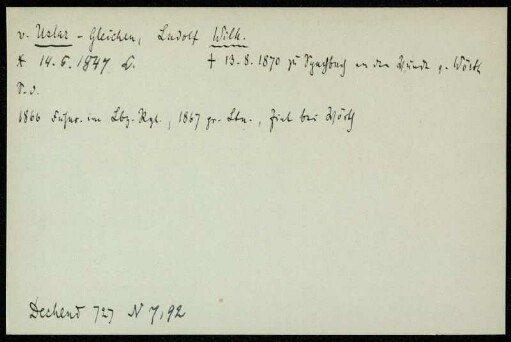 v. Uslar-Gleichen, Ludolf Wilh.
* 14.6.1847 † 13.8.1870 zu an den Wunde v. Wörth
S.d.
1866 im Rgt., 1867 pr. Ltn., bei Wörth
Dechend 727 N 7,92